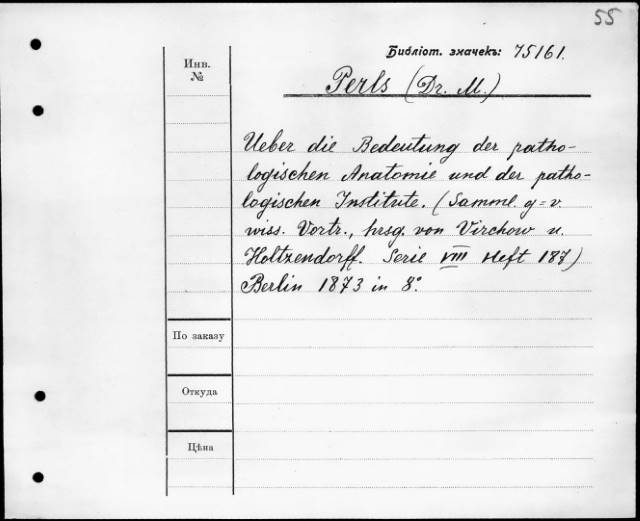 55
Библіот. значекъ: 75161.
Инв.
№
Perls (Dr. M.)
Ueber die Bedeutung der patho-
logischen Anatomie und der patho-
logischen Institute. (Samml. g=v
wiss. Vortr., hrsg. von Virchow u.
Holtzendorff. Serie VIII Heft 187)
Berlin 1873 in 8°.
По заказу
Откуда
Цѣна